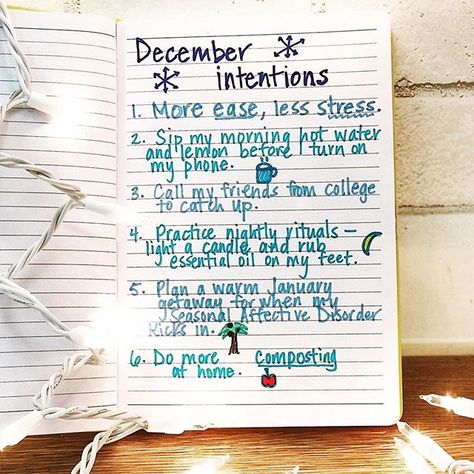 December
intentions
1. More ease, less stress.
2. Sip my morning hot water
and lemon before I turn on
my phone.
3. Call my friends from college
to catch up.
4. Practice nightly rituals –
light a candle and rub
essential oil on my feet.
5. Plan a warm January
getaway for when my
Seasonal Affective Disorder
Kicks in.
6. Do more Composting
at home.